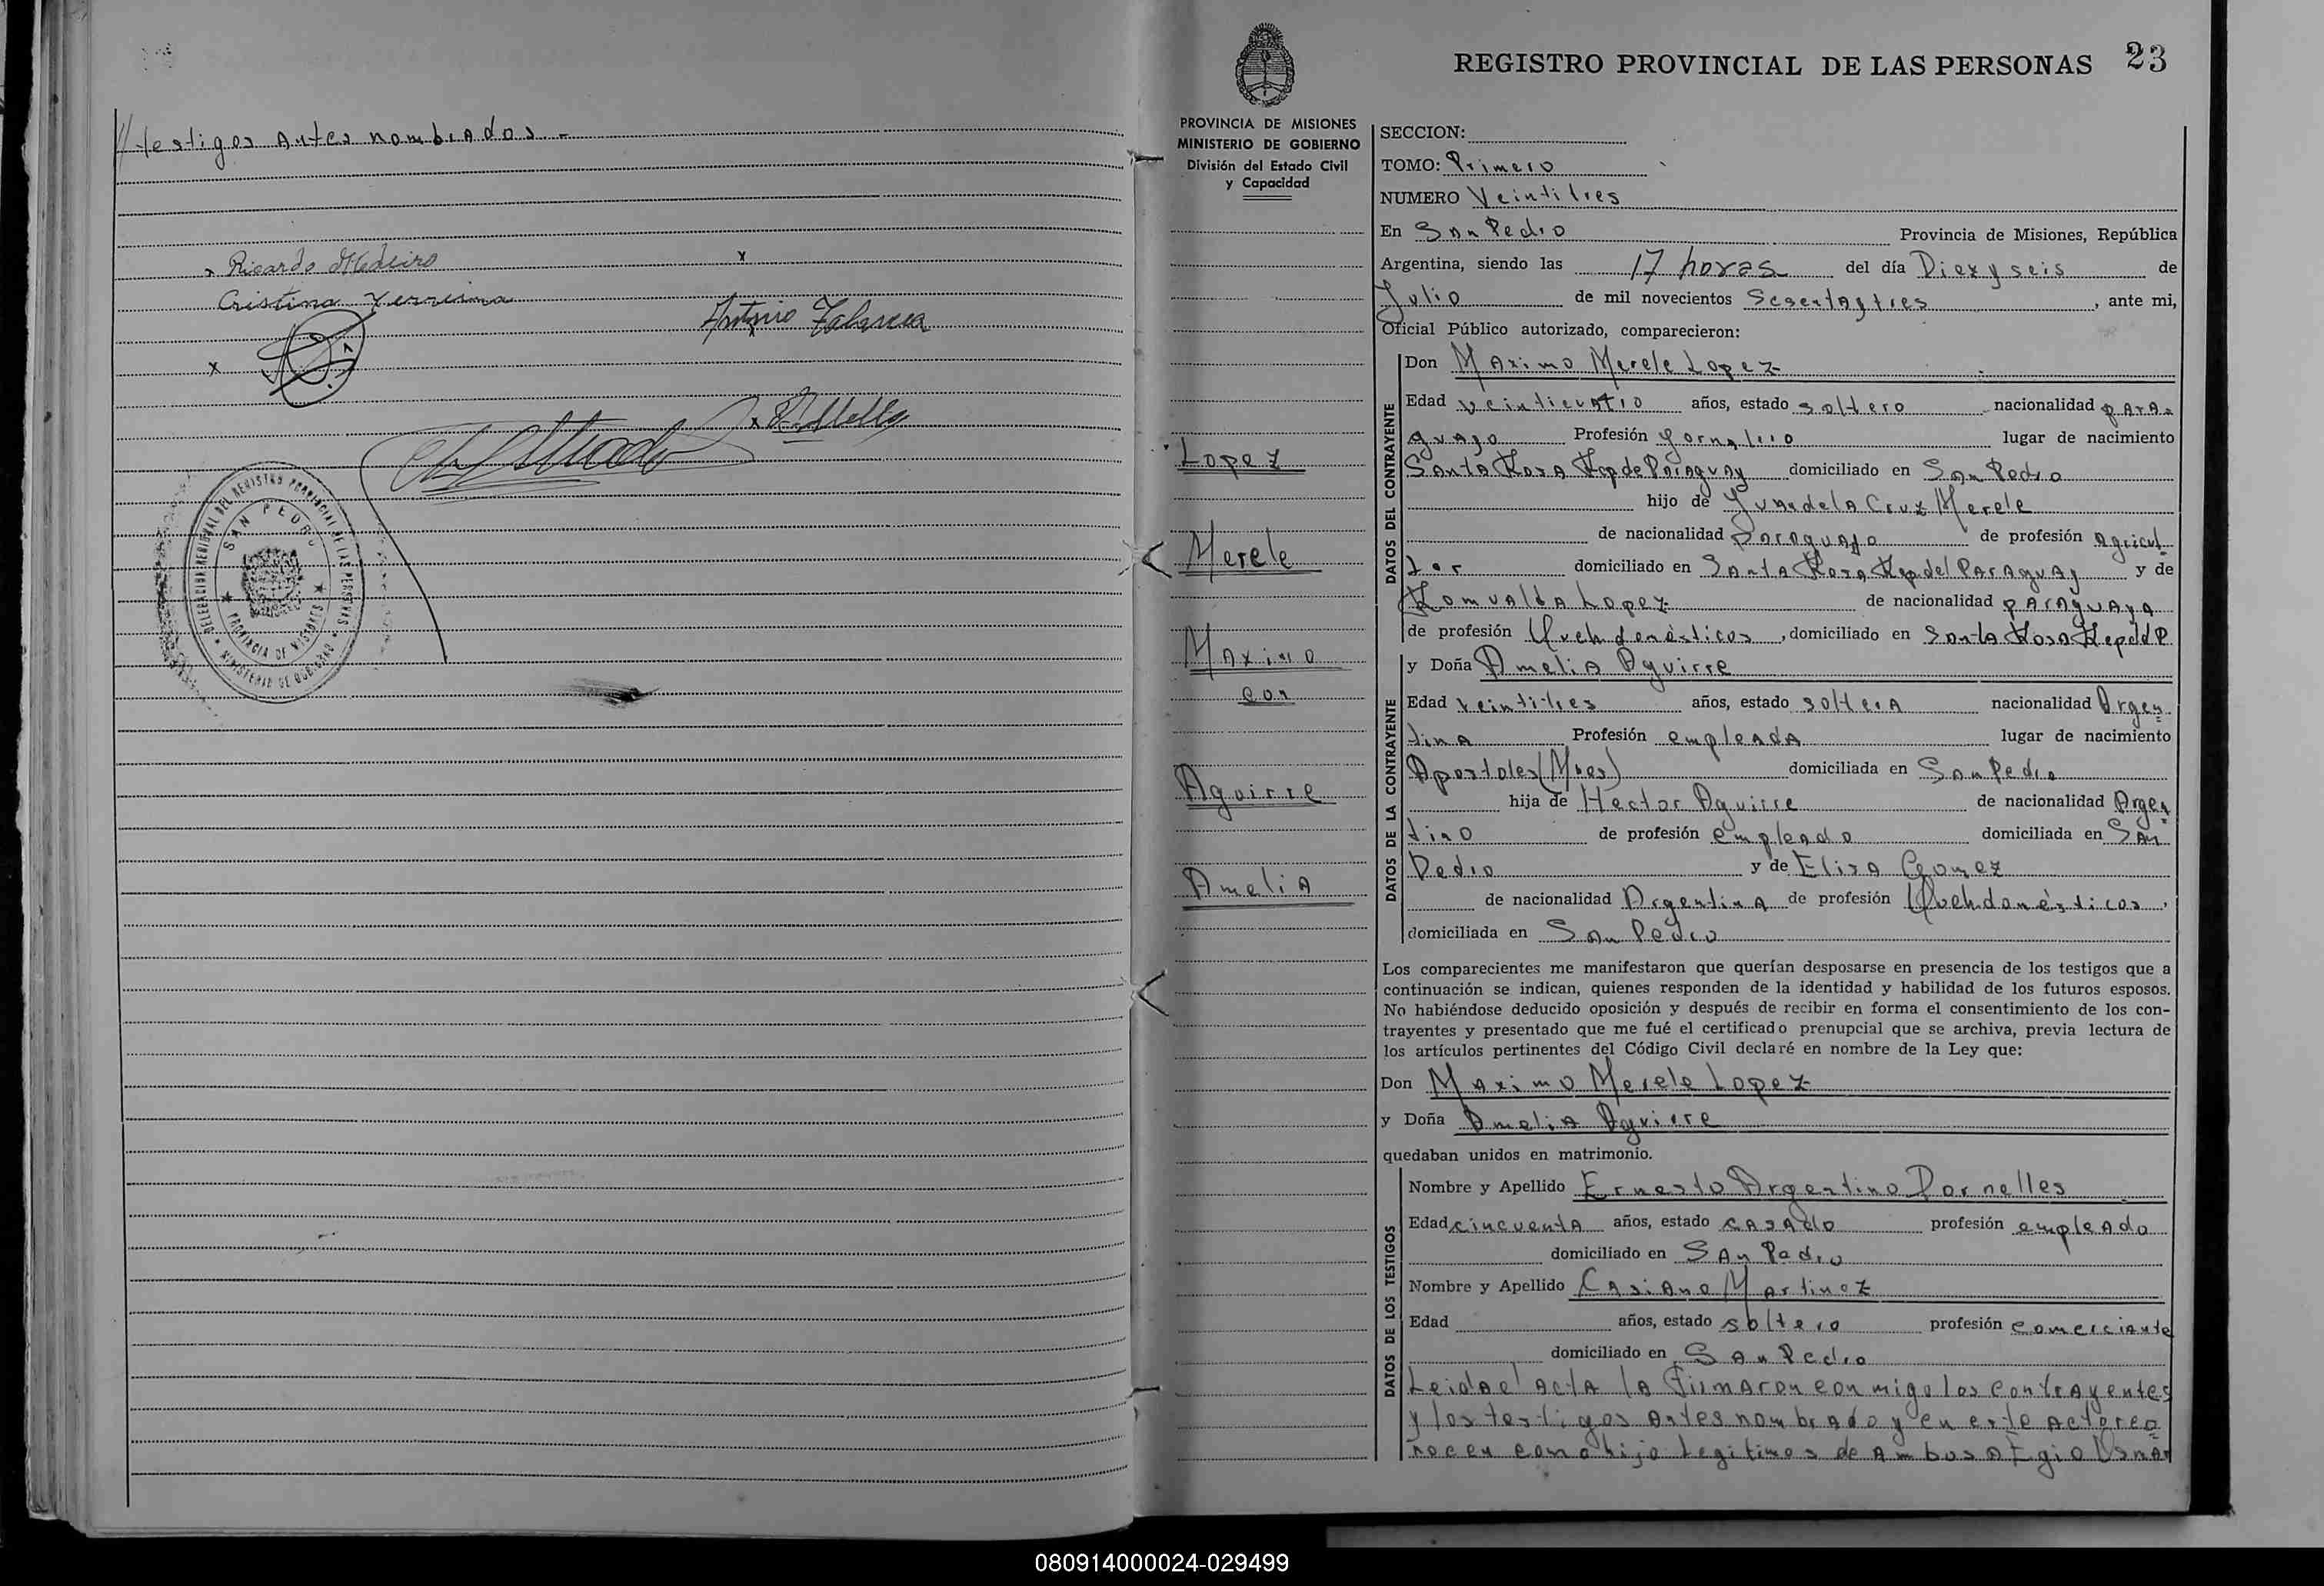 // testigos antes nombrados -
Ricardo Medeiro
x
Cristina
Antonio
x
DELEGACION REGIONAL DEL REGISTRO PROVINCIAL DE LAS PERSONAS
SAN PEDRO
PROVINCIA DE MISIONES
MINISTERIO DE GOBIERNO
REGISTRO PROVINCIAL DE LAS PERSONAS 23
PROVINCIA DE MISIONES
MINISTERIO DE GOBIERNO
División del Estado Civil
y Capacidad
Lopez
Merele
Maximo
con
Aguirre
Amelia
SECCION:
TOMO: Primero
NUMERO Veintitres
En San Pedro Provincia de Misiones, República
Argentina, siendo las 17 horas del día Diez y seis de
Julio de mil novecientos Sesentaytres, ante mi,
Oficial Público autorizado, comparecieron:
DATOS DEL CONTRAYENTE
Don Maximo Merele Lopez
Edad veinticuatro años, estado soltero nacionalidad para=
guayo Profesión Jornalero lugar de nacimiento
Santa Rosa Rep de Paraguay domiciliado en San Pedro
hijo de Juan de la Cruz Merele
de nacionalidad paraguayo de profesión Agricul=
tor domiciliado en Santa Rosa Rep del Paraguay y de
Romualda Lopez de nacionalidad paraguaya
de profesión Queh domésticos, domiciliado en Santa Rosa Rep del P.
DATOS DE LA CONTRAYENTE
y Doña Amelia Aguirre
Edad veintitres años, estado soltera nacionalidad Argen=
tina Profesión empleada lugar de nacimiento
Apostoles (Mnes) domiciliada en San Pedro
hija de Hector Aguirre de nacionalidad Argen=
tino de profesión empleado domiciliada en San
Pedro y de Elisa Gomez
de nacionalidad Argentina de profesión Queh domésticos,
domiciliada en San Pedro
Los comparecientes me manifestaron que querían desposarse en presencia de los testigos que a
continuación se indican, quienes responden de la identidad y habilidad de los futuros esposos.
No habiéndose deducido oposición y después de recibir en forma el consentimiento de los con-
trayentes y presentado que me fué el certificado prenupcial que se archiva, previa lectura de
los artículos pertinentes del Código Civil declaré en nombre de la Ley que:
Don Maximo Merele Lopez
y Doña Amelia Aguirre
quedaban unidos en matrimonio.
DATOS DE LOS TESTIGOS
Nombre y Apellido Ernesto Argentino Dornelles
Edad cincuenta años, estado casado profesión empleado
domiciliado en San Pedro
Nombre y Apellido Casiano Martinez
Edad años, estado soltero profesión comerciante
domiciliado en San Pedro
Leida el acta la firmaron conmigo los contrayentes
y los testigos antes nombrado y en este acto reco=
nocen como hijo legitimos de ambos a
080914000024-029499